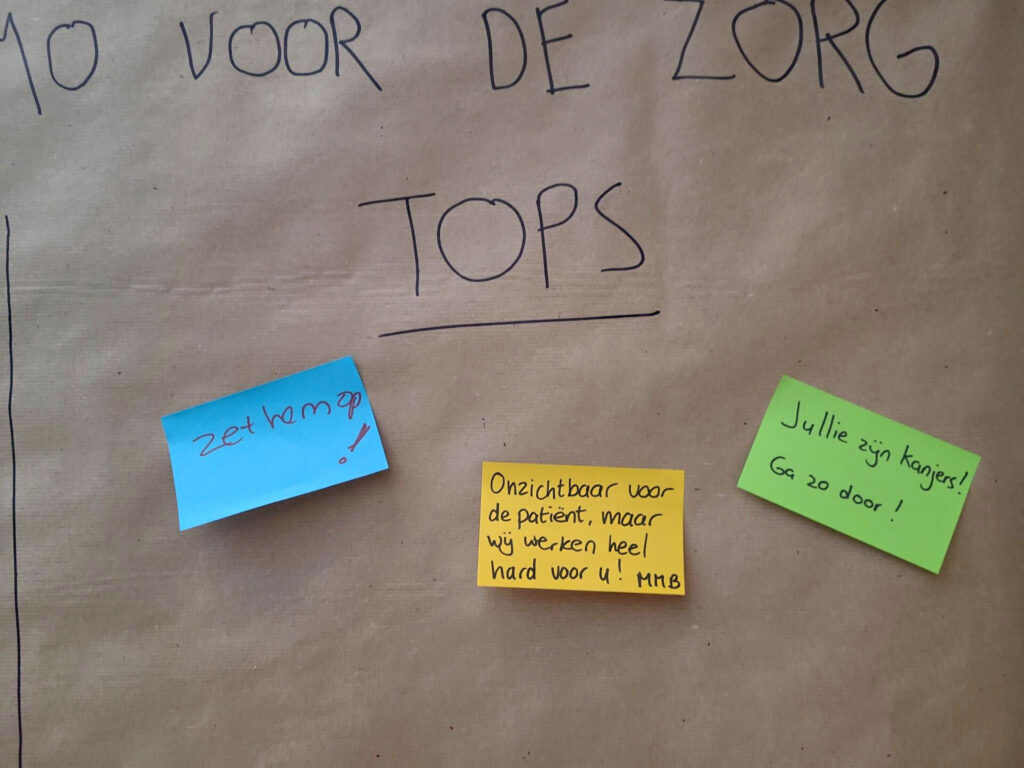 10 VOOR DE ZORG
TOPS
zet hem op
!
Onzichtbaar voor
de patiënt, maar
wij werken heel
hard voor u! MMB
Jullie zijn kanjers!
Ga zo door!